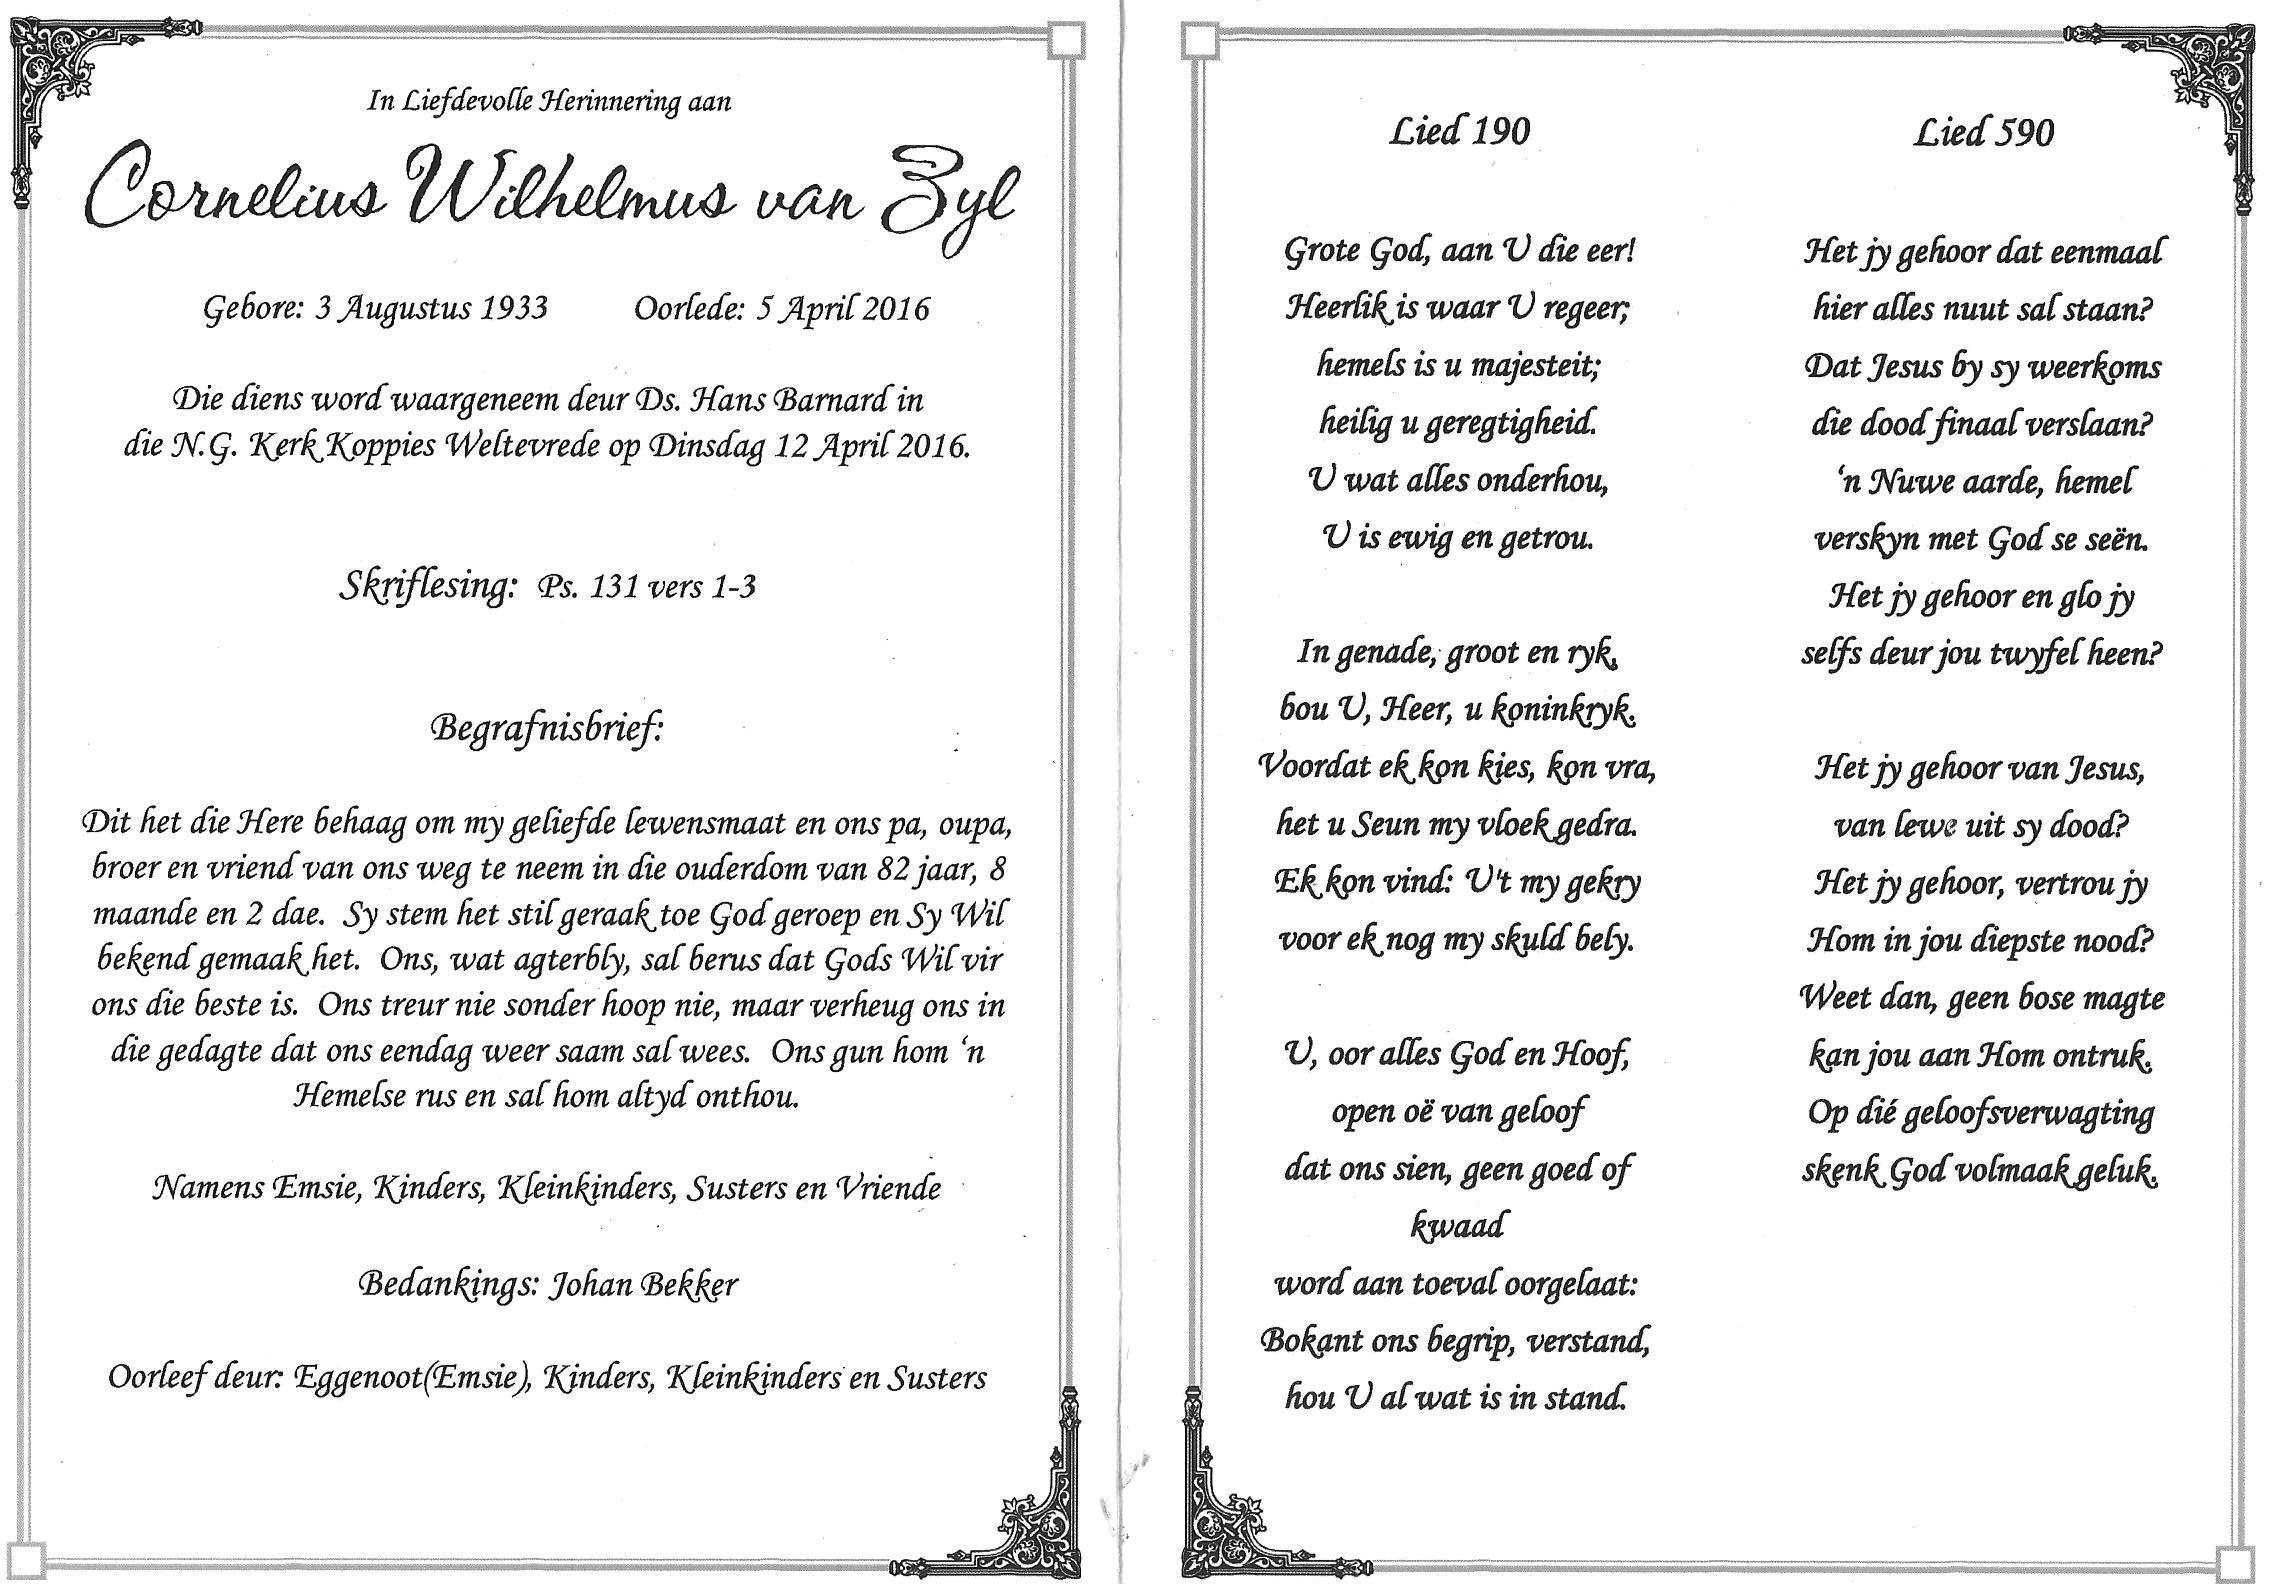 In Liefdevolle Herinnering aan
Cornelius Wilhelmus van Zyl
Gebore: 3 Augustus 1933 Oorlede: 5 April 2016
Die diens word waargeneem deur Ds. Hans Barnard in
die N.G. Kerk Koppies Weltevrede op Dinsdag 12 April 2016.
Skriflesing: Ps. 131 vers 1-3
Begrafnisbrief:
Dit het die Here behaag om my geliefde lewensmaat en ons pa, oupa,
broer en vriend van ons weg te neem in die ouderdom van 82 jaar, 8
maande en 2 dae. Sy stem het stil geraak toe God geroep en Sy Wil
bekend gemaak het. Ons, wat agterbly, sal berus dat Gods Wil vir
ons die beste is. Ons treur nie sonder hoop nie, maar verheug ons in
die gedagte dat ons eendag weer saam sal wees. Ons gun hom ‘n
Hemelse rus en sal hom altyd onthou.
Namens Emsie, Kinders, Kleinkinders, Susters en Vriende
Bedankings: Johan Bekker
Oorleef deur: Eggenoot(Emsie), Kinders, Kleinkinders en Susters
Lied 190
Grote God, aan U die eer!
Heerlik is waar U regeer;
hemels is u majesteit;
heilig u geregtigheid.
U wat alles onderhou,
U is ewig en getrou.
In genade, groot en ryk,
bou U, Heer, u koninkryk.
Voordat ek kon kies, kon vra,
het u Seun my vloek gedra.
Ek kon vind: U't my gekry
voor ek nog my skuld bely.
U, oor alles God en Hoof,
open oë van geloof
dat ons sien, geen goed of
kwaad
word aan toeval oorgelaat:
Bokant ons begrip, verstand,
hou U al wat is in stand.
Lied 590
Het jy gehoor dat eenmaal
hier alles nuut sal staan?
Dat Jesus by sy weerkoms
die dood finaal verslaan?
‘n Nuwe aarde, hemel
verskyn met God se seën.
Het jy gehoor en glo jy
selfs deur jou twyfel heen?
Het jy gehoor van Jesus,
van lewe uit sy dood?
Het jy gehoor, vertrou jy
Hom in jou diepste nood?
Weet dan, geen bose magte
kan jou aan Hom ontruk.
Op dié geloofsverwagting
skenk God volmaak geluk.